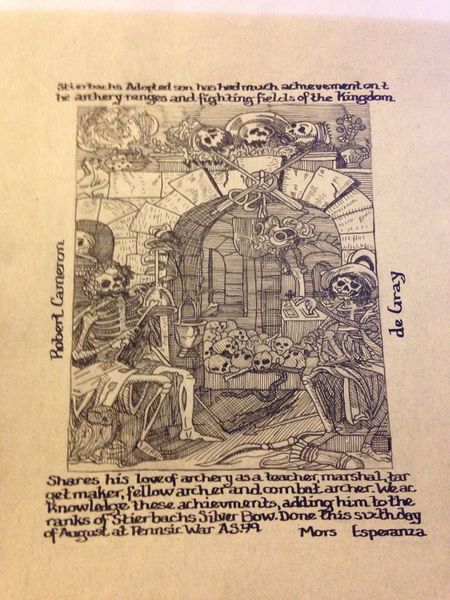 Stierbachs Adopted son has had much achievement on t
he archery ranges and fighting fields of the Kingdom
Robert Cameron
de Gray
Shares his love of archery as a teacher, marshal, tar
get maker, fellow archer and combat archer. We ac
knowledge these achievments, adding him to the
ranks of Stierbachs Silver Bow. Done this sixth day
of August at Pennsic War A.S. 49
Mors Esperanza